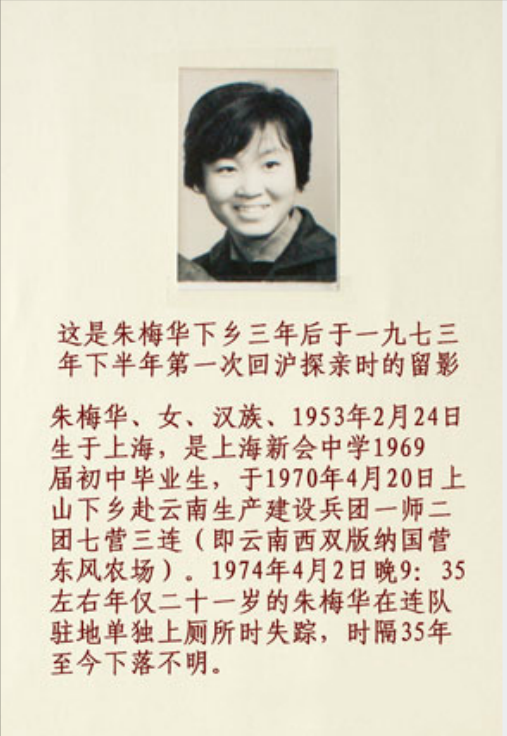 这是朱梅华下乡三年后于一九七三
年下半年第一次回沪探亲时的留影
朱梅华、女、汉族、1953年2月24日
生于上海，是上海新会中学1969
届初中毕业生，于1970年4月20日上
山下乡赴云南生产建设兵团一师二
团七营三连（即云南西双版纳国营
东风农场）。1974年4月2日晚9：35
左右年仅二十一岁的朱梅华在连队
驻地单独上厕所时失踪，时隔35年
至今下落不明。